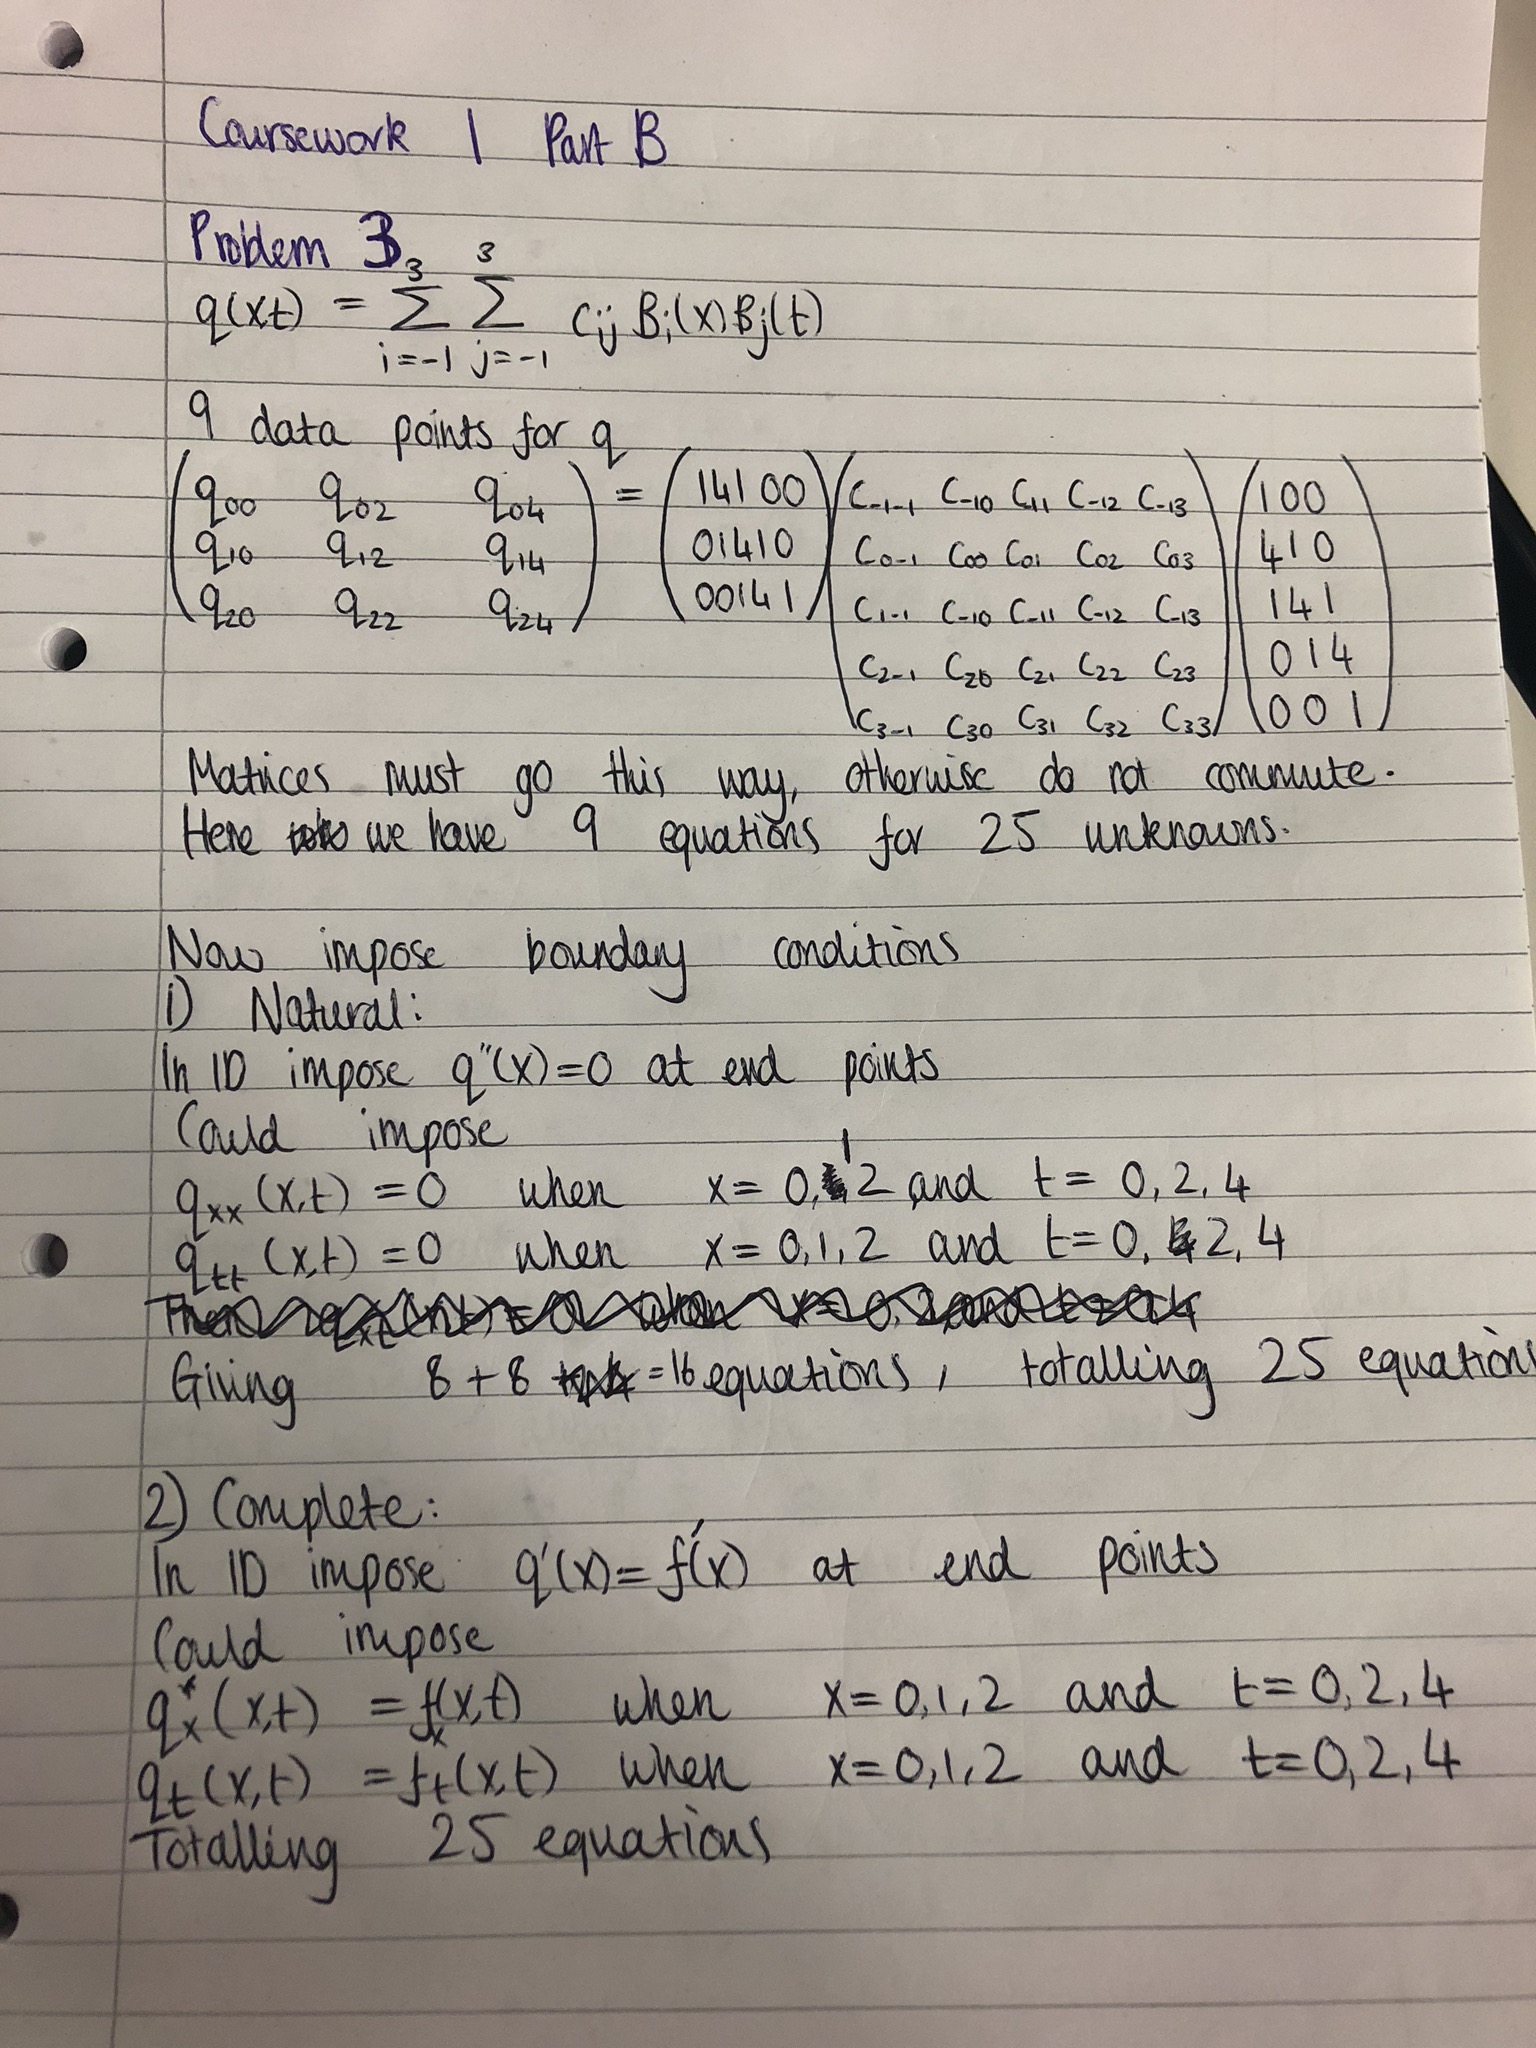 Coursework 1 Part B
Problem 3
q(xt) = 3Σi=-1 3Σj=-1 Cij Bi(x)Bj(t)
9 data points for q
(q00 q02 q04) = (14100)(C-1-1 C-10 C11 C-12 C-13)(100)
(q10 q12 q14) (01410)(C0-1 C00 C01 C02 C03)(410)
(q20 q22 q24) (00141)(C1-1 C-10 C-11 C-12 C-13)(141)
(C2-1 C20 C21 C22 C23)(014)
(C3-1 C30 C31 C32 C33)(001)
Matrices must go this way, otherwise do not commute.
Here we have 9 equations for 25 unknowns.
Now impose boundary conditions
1) Natural:
In 1D impose q''(x)=0 at end points
Could impose
qxx (x,t) = 0 when x = 0,1,2 and t = 0, 2, 4
qtt (x,t) = 0 when x = 0,1,2 and t = 0, 2, 4
Giving 8+8 = 16 equations, totalling 25 equations
2) Complete:
In 1D impose q'(x) = f'(x) at end points
Could impose
qx (x,t) = fx(x,t) when x=0,1,2 and t=0,2,4
qt (x,t) = ft(x,t) when x=0,1,2 and t=0,2,4
Totalling 25 equations